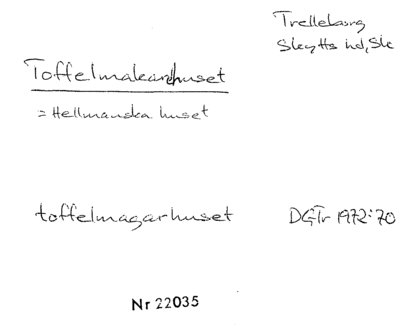 Trelleborg
Skytts hd, Sk
Toffelmakarehuset
= Hellmanska huset
toffelmagarhuset DGTr 1972:70
Nr 22035